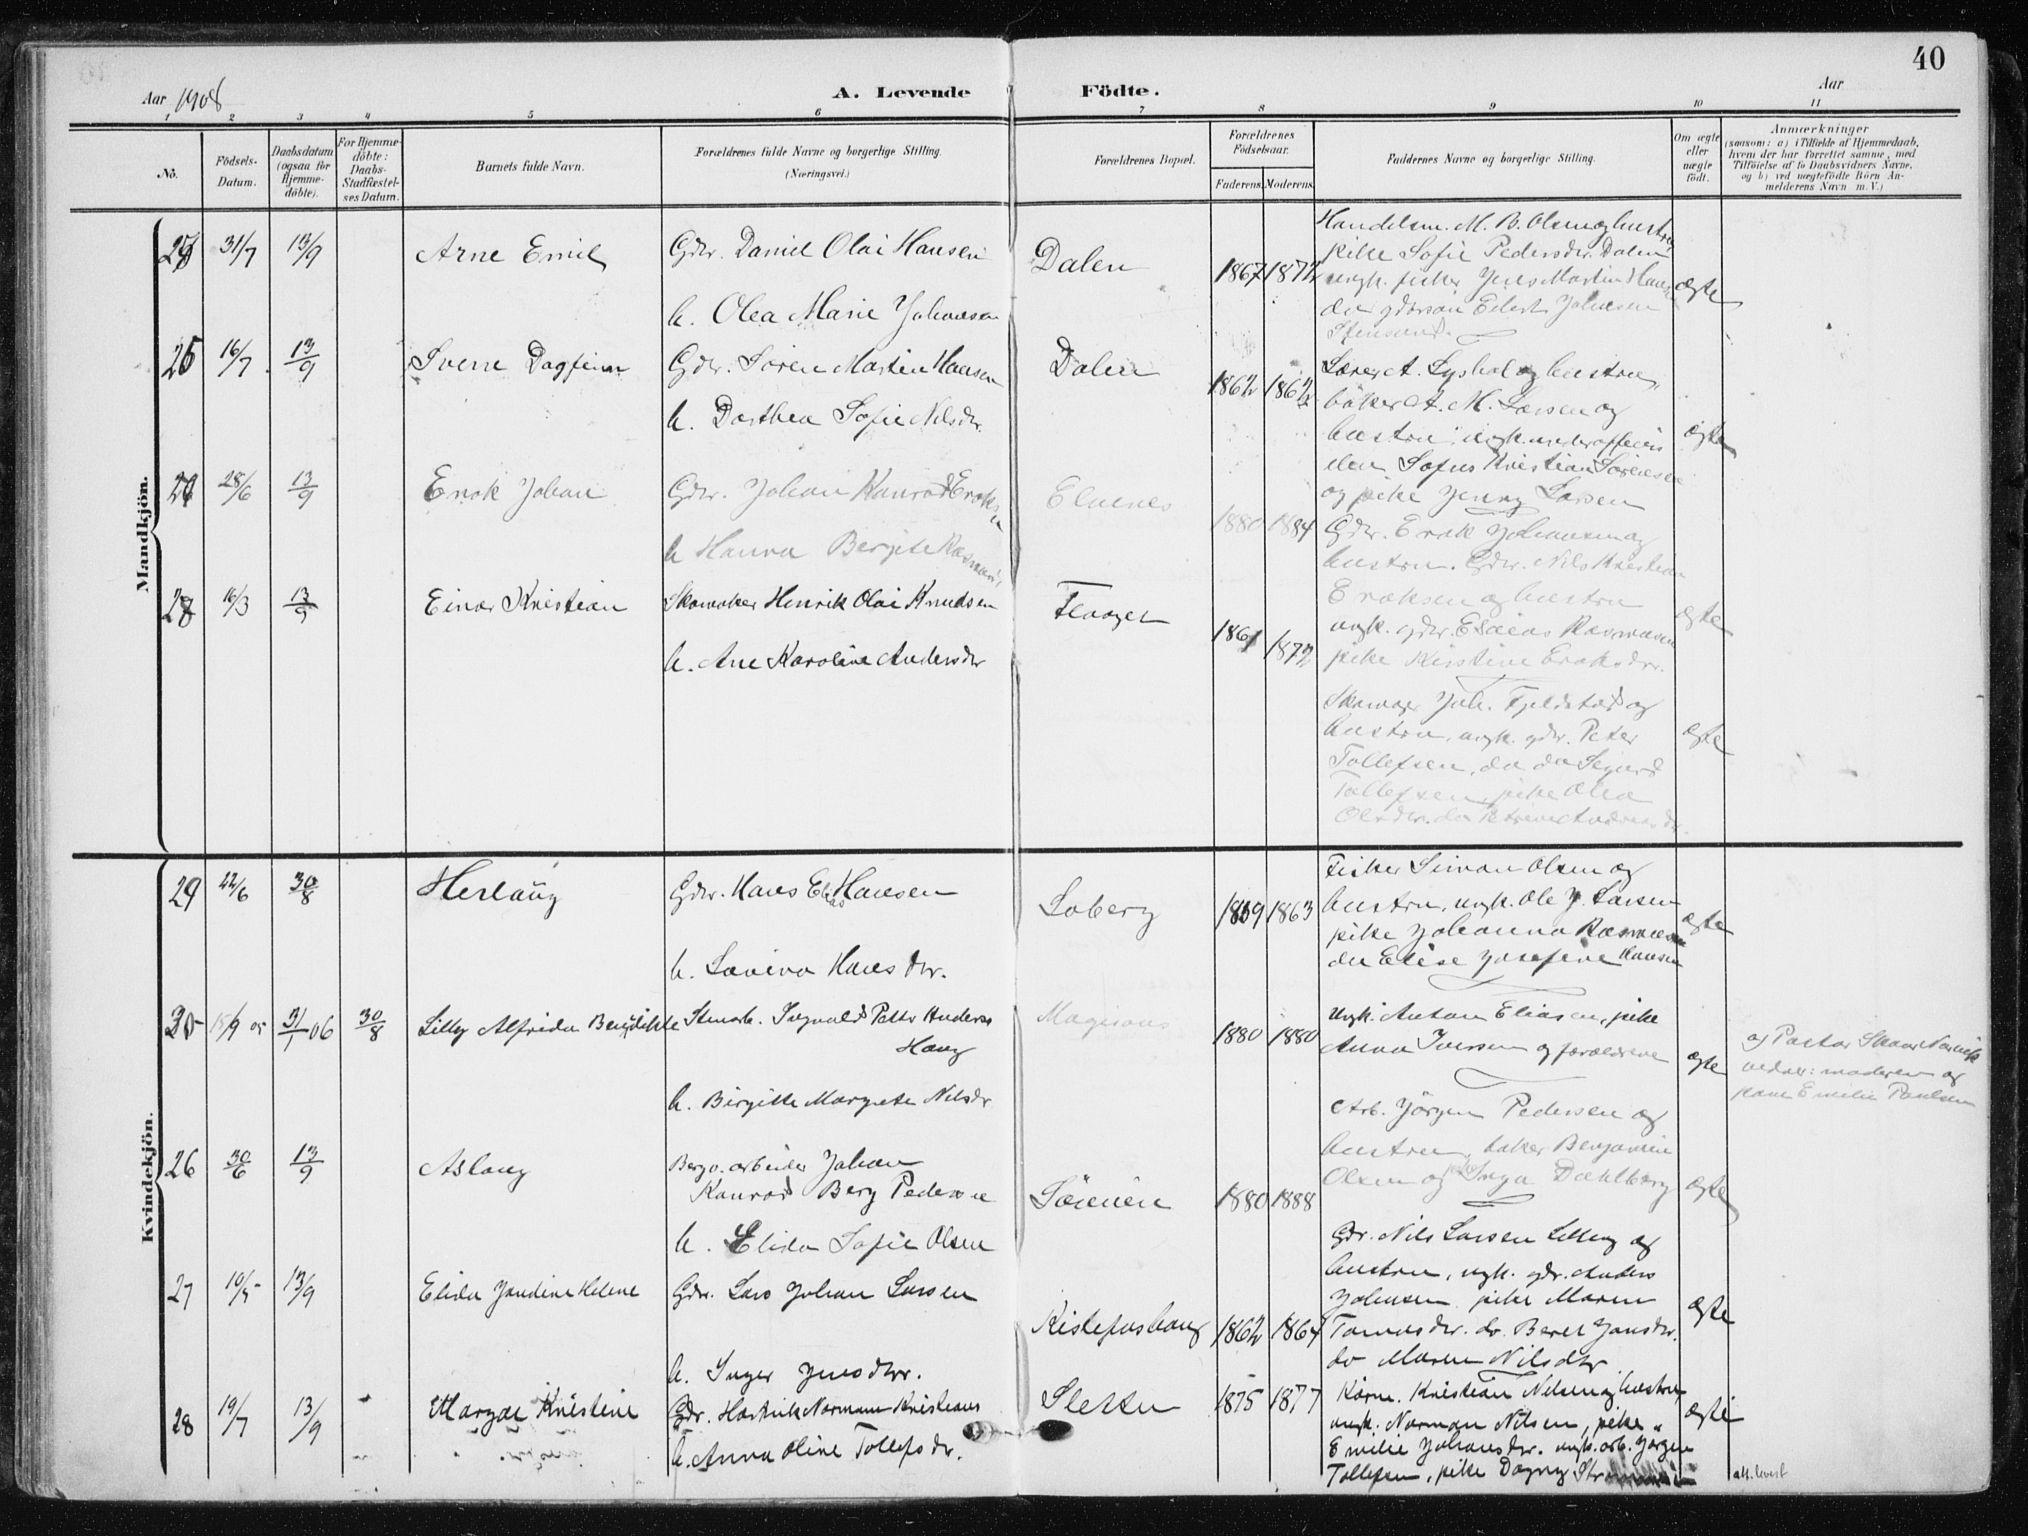 40
Aar 1908
A. Levende Födte.
Aar
1 2 3 4 5 6 7 8 9 10 11
No.
Födsels-Datum.
Daabsdatum (ogsaa for Hjemme-döbte).
For Hjemme-döbte: Daabs-Stadfæstel-ses Datum.
Barnets fulde Navn.
Forældrenes fulde Navne og borgerlige Stilling.
(Næringsvei.)
Forældrenes Bopæl.
Forældrenes Födselsaar.
Faderens. Moderens.
Faddernes Navne og borgerlige Stilling.
Om ægte eller uægte födt.
Anmærkninger
(saasom: a) i Tilfælde af Hjemmedaab,
hvem der har forrettet samme, med
Tilföielse af to Daabsvidners Navne,
og b) ved uægtefödte Börn An-
melderens Navn m. V.)
Mandkjön.
31/7 13/9 Arne Emil Gdr. Daniel Olai Hansen
h. Olea Marie Johansen
Dalen 1867 1872
Handelsm. M. B. Olsen og hustru
pike Sofie Pedersdr. Dalen
ungk. fisker Jens Martin Hansen
do gdrsøn Edert Johnsen
ægte
25 16/7 13/9 Sverre Dagfinn Gdr. Sören Martin Hansen
h. Dorthea Sofie Nilsdr.
Dalen 1862 1862
Lærer A. Lysholm og hustru,
bäker A. M. Larsen og
hustru, ungk. underofficer
elev Sofus Kristian Sörensen
og pike Jenny Larsen
ægte
28/6 13/9 Erik Johan Gdr. Johan Konrad Eriksen
h Hanna Bergite Rasmusd.
Elvenes 1880 1884
Gdr. Erik Johansen og
hustru. Gdr. Nils Kristian
Eriksen og hustru
ungk. gdr. Elias Rasmussen
pike Kirstine Eriksdr.
ægte
28 16/3 13/9 Einar Kristian Skomaker Henrik Olai Knudsen
h. Ane Karoline Andersdr
Flaaget 1861 1872
Skomager Joh. Fjeldstad og
hustru, ungk. gdr. Peter
Tollefsen, do do Sigurd
Tollefsen, pike Olea
Olsdr. do Petrine Andreasdr.
ægte
Kvindekjön.
29 22/6 30/8 Herlaug Gdr. Hans Elias Hansen
h. Lavina Hansdtr.
Soberg 1869 1863
Fisker Simon Olsen og
hustru, ungk. Ole J. Larsen
pike Johanna Rasmussen
do Elise Josefine Hansen
ægte
15/9 05 31/1 06 30/8 Lilly Alfrida Bendikte Stenarb. Ingvald Petter Anders
Haug
h. Birgitte Margrete Nilsdr
1880 1880
Ungk. Anton Eliasen, pike
Anna Iversen og foreldrene
ægte
av Pastor Skaar Narvik
vidner: moderen og
frøken Emilie Paulsen
26 30/6 13/9 Aslaug Bergv. arbeider Johan
Konrad Berg Pedersen
h. Elida Sofie Olsen
Sörvien 1880 1888
Arb. Jörgen Pedersen og
hustru, baker Benjamin
Olsen og Inga Dahlberg
ægte
27 10/5 13/9 Elida Jandine Helene Gdr. Lars Johan Larsen
h. Inger Jensdtr.
Kistefoshaug 1862 1864
Gdr. Nils Larsen Lilleng og
hustru, ungk. gdr. Anders
Johnsen pike Maren
Tomasdr. do Beret Jensdr.
do Maren Nilsdtr
ægte
28 19/7 13/9 Margot Kristine Gdr. Hartvik Normann Kristians
h. Anna Oline Tollefsdr.
Sletten 1875 1877
Kristian Nilsen og hustru
ungk. Norman Nilsen, pike
Emilie Johansdr. ungk. arb. Jörgen
Tollefsen, pike Dagny
ægte
att. levert